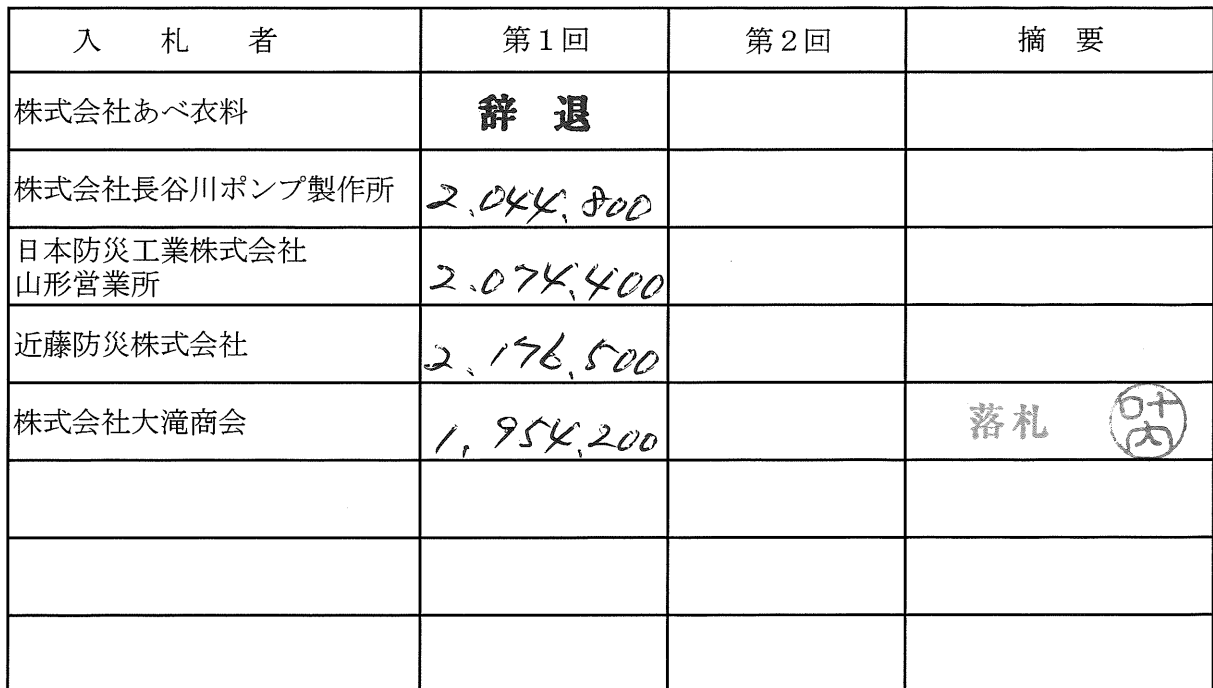 入札者 第1回 第2回 摘要
株式会社あべ衣料 辞退
株式会社長谷川ポンプ製作所 2,044,800
日本防災工業株式会社
山形営業所 2,074,400
近藤防災株式会社 2,176,500
株式会社大滝商会 1,954,200 落札 叶内